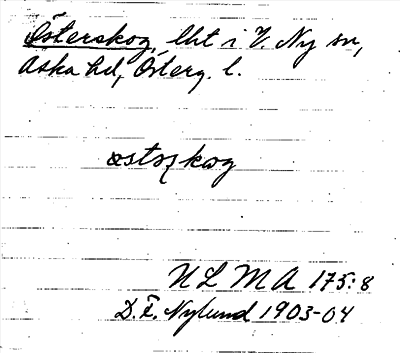 Österskog, lht i V. Ny sn,
Aska hd, Österg. l.
østoʂkog
ULMA 175:8
D. F. Nylund 1903-04